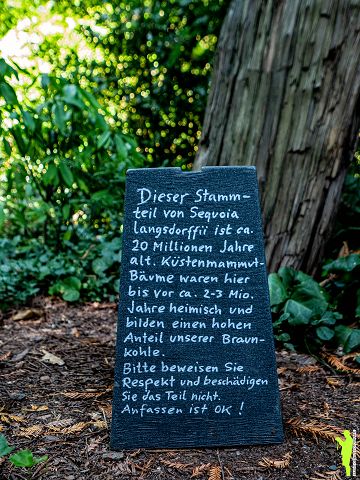 Dieser Stamm-
teil von Sequoia
langsdorffii ist ca.
20 Millionen Jahre
alt. Küstenmammut-
Bäume waren hier
bis vor ca. 2-3 Mio.
Jahre heimisch und
bilden einen hohen
Anteil unserer Braun-
kohle.
Bitte beweisen Sie
Respekt und beschädigen
Sie das Teil nicht.
Anfassen ist OK !